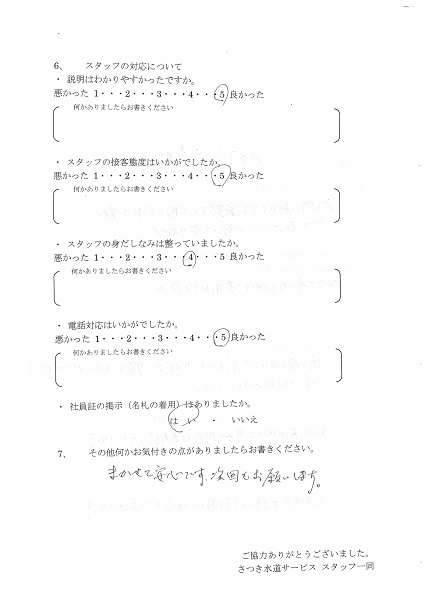 6、 スタッフの対応について
・ 説明はわかりやすかったですか。
悪かった 1・・・2・・・3・・・4・・・5 良かった
何かありましたらお書きください
・ スタッフの接客態度はいかがでしたか。
悪かった 1・・・2・・・3・・・4・・・5 良かった
何かありましたらお書きください
・ スタッフの身だしなみは整っていましたか。
悪かった 1・・・2・・・3・・・4・・・5 良かった
何かありましたらお書きください
・ 電話対応はいかがでしたか。
悪かった 1・・・2・・・3・・・4・・・5 良かった
何かありましたらお書きください
・ 社員証の掲示（名札の着用）はありましたか。
はい ・ いいえ
7、 その他何かお気付きの点がありましたらお書きください。
まかせて安心です、次回もお願いします。
ご協力ありがとうございました。
さつき水道サービス スタッフ一同